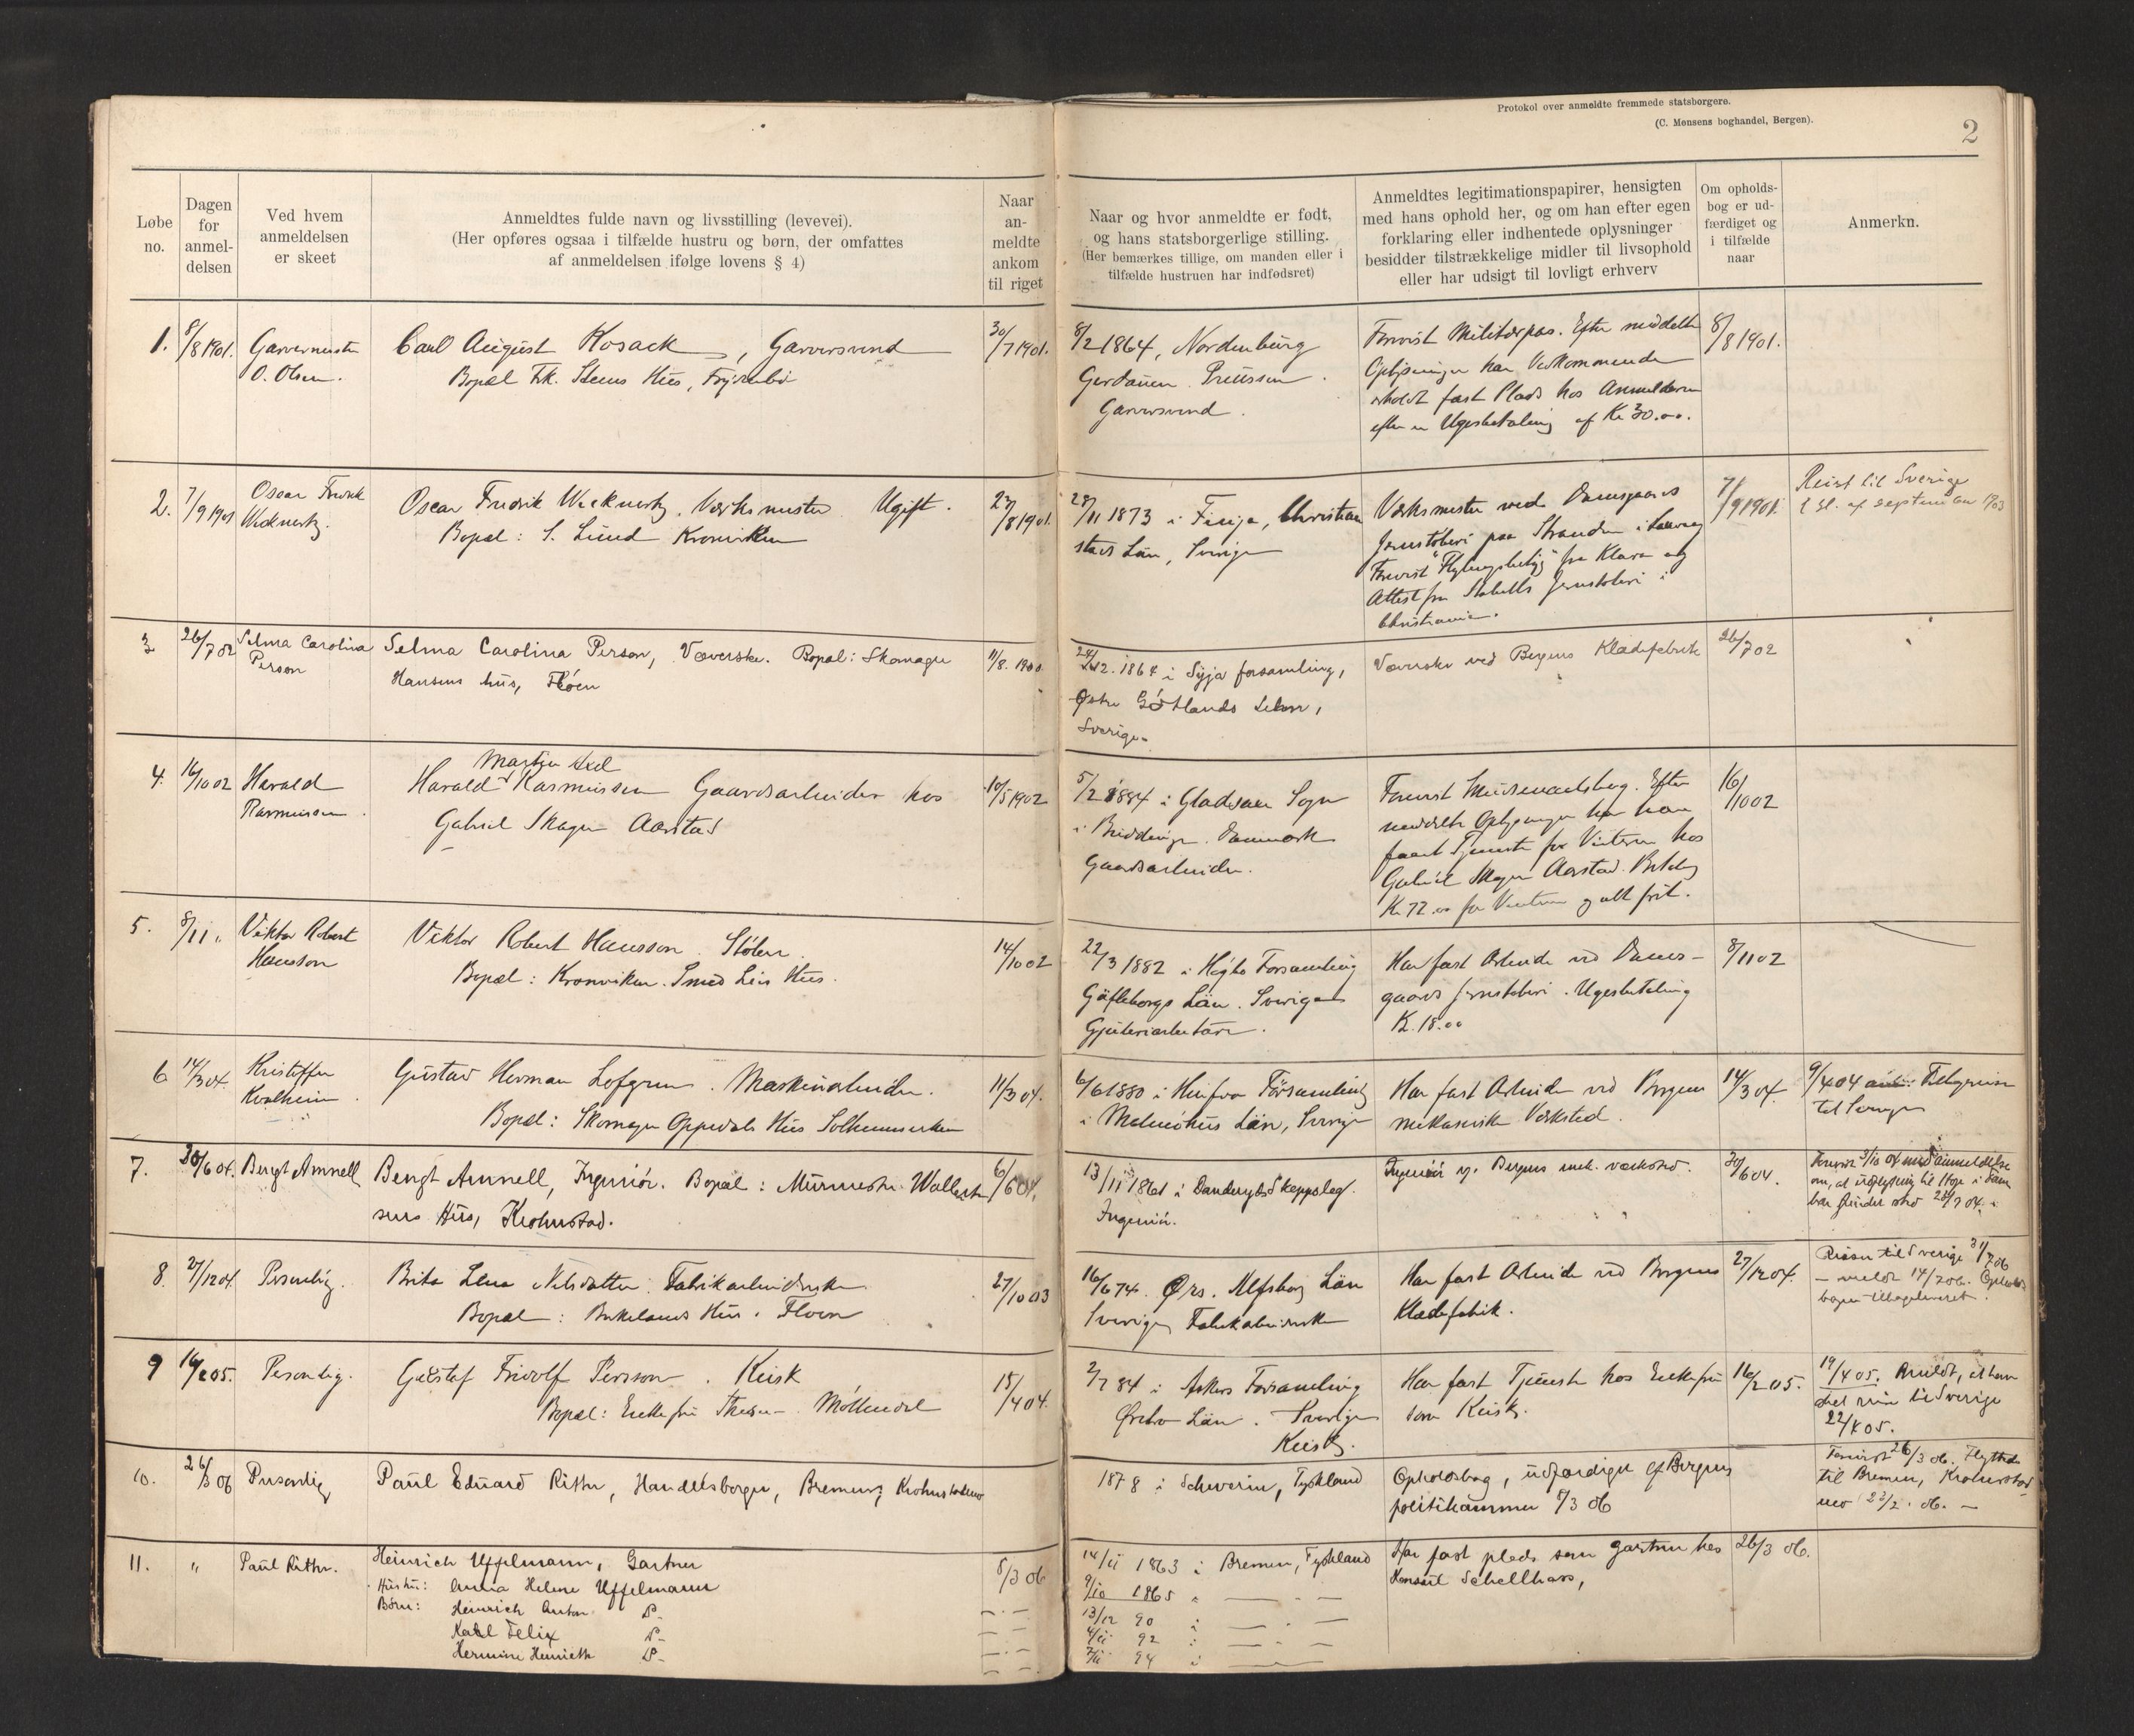 Protokol over anmeldte fremmede statsborgere.
(C. Monsens boghandel, Bergen).
2
Løbe no.
Dagen for anmel-delsen
Ved hvem anmeldelsen er skeet
Anmeldtes fulde navn og livsstilling (levevei).
(Her opføres ogsaa i tilfælde hustru og børn, der omfattes
af anmeldelsen ifølge lovens § 4)
Naar an-meldte ankom til riget
Naar og hvor anmeldte er født,
og hans statsborgerlige stilling.
(Her bemærkes tillige, om manden eller i
tilfælde hustruen har indfødsret)
Anmeldtes legitimationspapirer, hensigten
med hans ophold her, og om han efter egen
forklaring eller indhentede oplysninger
besidder tilstrækkelige midler til livsophold
eller har udsigt til lovligt erhverv
Om opholds-bog er ud-færdiget og i tilfælde naar
Anmerkn.
1.
8/8 1901.
Garvermester
O. Olsen.
Carl August Kosack, Garversvend
Bopæl Frk. Stens Hus,
30/7 1901.
8/2 1864, Nordenburg
Gerdauen Preussen.
Garversvend.
Forevist Militærpas. Efter meddelte
Oplysninger har Vedkommende
erholdt fast Plads hos Anmelderen
efter en Ugesbetaling af Kr 30.00.
8/8 1901.
2.
7/9 1901
Oscar Fredrik
Wecknertz.
Oscar Fredrik Wecknertz. Værksmester. Ugift.
Bopæl: S. Lund Kronviken
27/8 1901.
28/11 1873 i Finja, Christian
stads Län, Sverige
Værksmester ved Damsgaards
Jernstøberi paa Stranden i Laxevaag
Forevist "Flytningsbetyg" fra Klara og
Attest fra Jernstøberi i
Christiania.
7/9 1901.
Reist til Sverige
i sl. af september 1903
3
26/7 02
Selma Carolina
Person
Selma Carolina Person, Væverske. Bopæl: Skomager
Hansens hus, Fløen
11/8. 1900
24/12. 1864 i forsamling,
Østre Götlands Lehn,
Sverige.
Væverske ved Bergens Klædefabrik
26/7 02
4.
16/10 02
Harald
Rasmussen.
Martin Axel
Harald Rasmussen Gaardsarbeider hos
Gabriel Skagen Aarstad
10/5 1902
5/2 1884 i Gladsaxe Sogn
i Buddinge. Danmark
Gaardsarbeider.
Forevist. Efter
meddelte Oplysninger har han
faaet Tjeneste for Vinteren hos
Gabriel Skagen Aarstad. Betaling
Kr 72.00 for Vinteren og alt frit.
16/10 02
5.
8/11 "
Viktor Robert
Hansson
Viktor Robert Hansson. Støber
Bopæl: Kronviken. Smed Lies Hus.
14/10 02
22/3 1882 i Högbo Forsamling
Gäfleborgs Län. Sverige
Gjuteriarbetare.
Har fast Arbeide ved Dams-
gaards Jernstøberi. Ugesbetaling
Kr. 18.00
8/11 02
6
14/3 04.
Kristoffer
Kvalheim.
Gustav Herman Lofgren. Maskinarbeider.
Bopæl: Skomager Oppedals Hus Solheimsviken
11/3 04.
6/6 1880 i Församling
i Malmöhus Län, Sverige
Har fast Arbeide ved Bergens
mekaniske Værksted.
14/3 04.
9/4 04
til Sverige
7.
30/6 04.
Bengt Amnell
Bengt Amnell, Ingeniör. Bopæl: Murmester
sens Hus, Krohnstad.
6/6 04.
13/11 1861 i Danderyds Skeppslag.
Ingeniör.
Ingeniör v. Bergens mek. værksted.
30/6 04.
Forevist 3/10 04 med anmeldelse
om, at udflytning til Hope i Fane
har funder sted 28/9 04.
8.
27/12 04.
Personlig.
Brita Lena Nilsdatter. Fabrikarbeiderske
Bopæl: Birkelands Hus. Floen
27/10 03
16/6 74. Ørs. Alfsborg Län
Sverige, Fabrikarbeiderske
Har fast Arbeide ved Bergens
Klædefabrik.
27/12 04.
Reiser til Sverige 31/7 06
- meldt 14/7 06. Opholds-
bogen tilbageleveret.
9
16/2 05.
Personlig.
Gustaf Fridolf Persson. Kusk
Bopæl: Enkefru Møllendal
15/4 04.
2/7 84 i Askers Forsamling
Ørebro Län. Sverige
Kusk.
Har fast Tjeneste hos Enkefru
som Kusk.
16/2 05.
19/4 05. Anmeldt, at han
skal reise til Sverige
22/4 05.
10.
26/3 06
Personlig
Paul Eduard Ritter, Handelsborger, Bremen, Krohnstadens
1878 i Schwerin, Tyskland
Opholdsbog, udfærdiget af Bergens
politikammer 8/3 06
Forevist 26/3 06. Flyttet
til Bremen, Krohnstad
med 22/2. 06. —
11.
"
Paul Ritter.
Heinrich Uffelmann, Gartner
Hustru: Anna Helene Uffelmann
Børn: Heinrich Anton D°
Karl Felix D°
Hermine Henriette D°
8/3 06
14/11 1863 i Bremen, Tyskland
9/10 1865 " — " —
13/12 90 " — " —
4/11 92 " — " —
7/11 94 "
Har fast plads som gartner hos
Konsul Schellhass,
26/3 06.